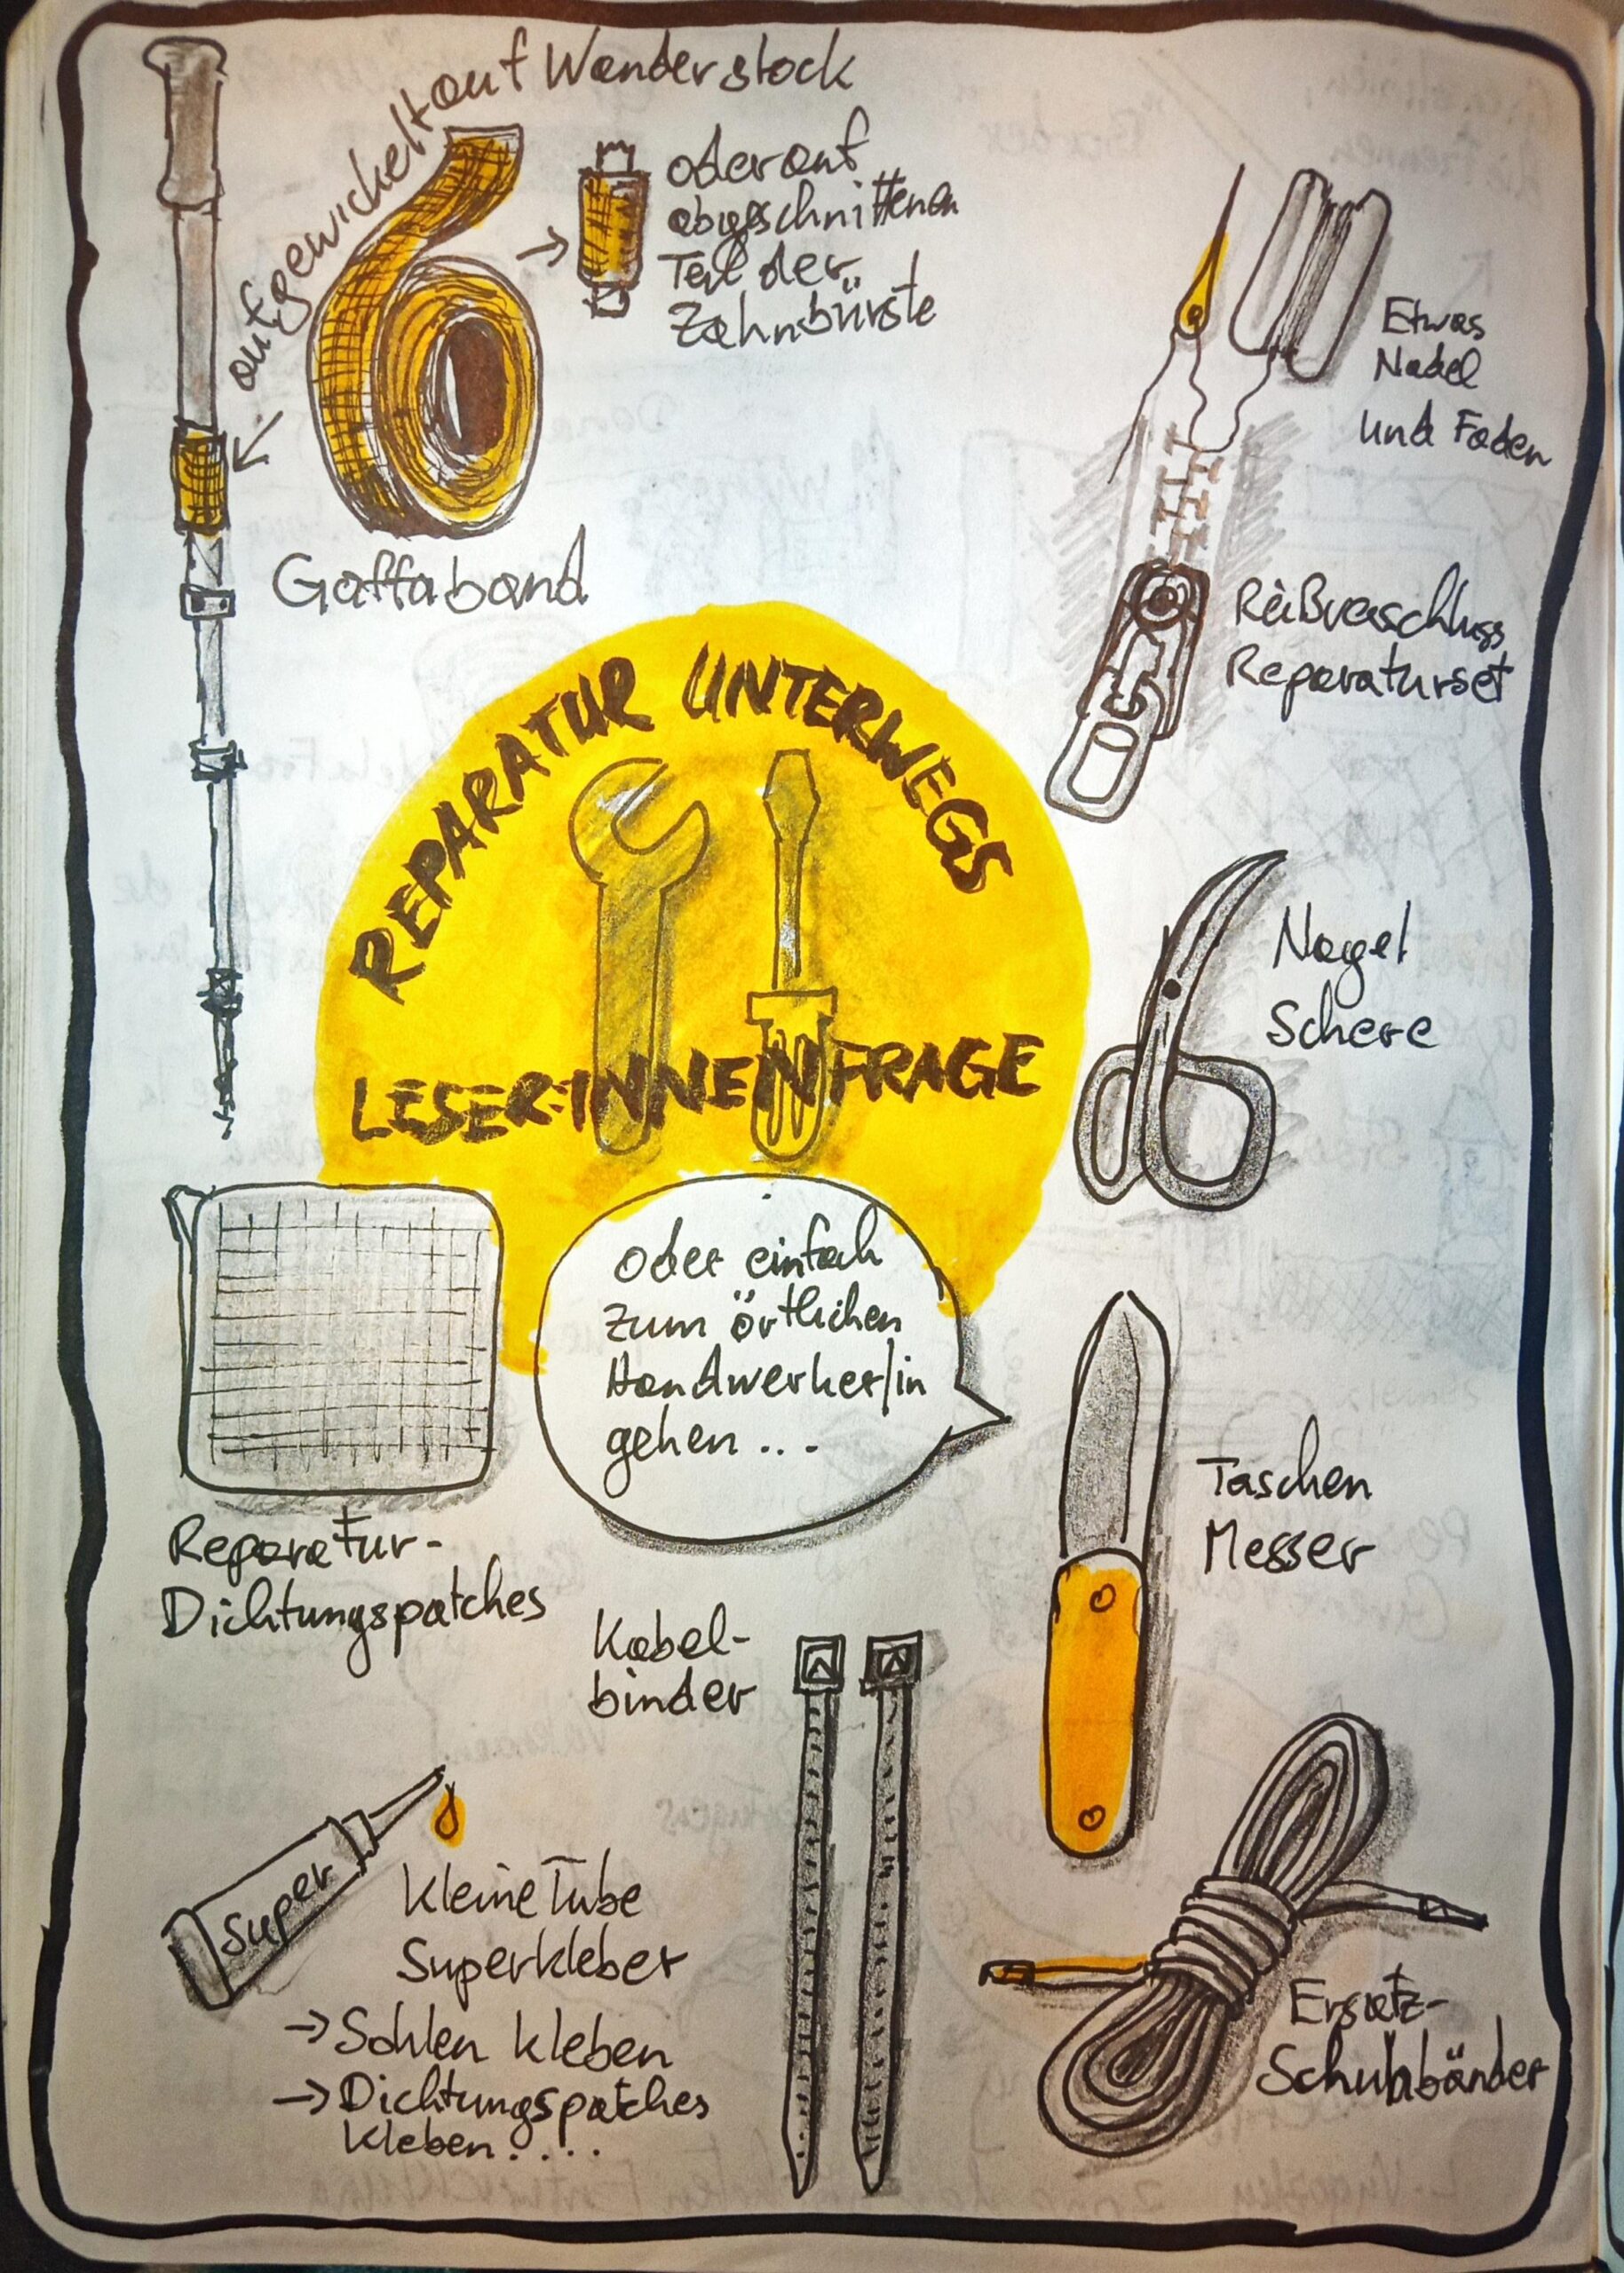 aufgewickelt auf Wanderstock
oder auf
abgeschnittenen
Teil der
Zahnbürste
Gaffaband
Etwas
Nadel
und Faden
Reißverschluss
Reparaturset
REPARATUR UNTERWEGS
LESER:INNENFRAGE
Nagel
Schere
oder einfach
zum örtlichen
Handwerker/in
gehen...
Reparatur-
Dichtungspatches
Taschen
Messer
Kabel-
binder
Super
Kleine Tube
Superkleber
→ Sohlen kleben
→ Dichtungspatches
kleben....
Ersatz-
Schuhbänder